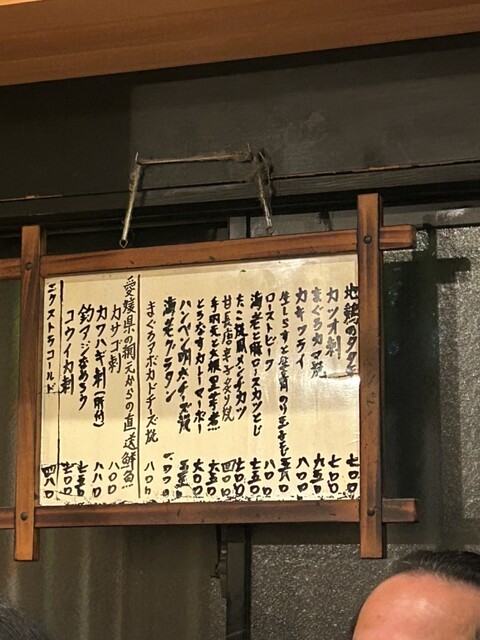 地鶏のタタキ 七〇〇
カツオ刺 七〇〇
まぐろカマ焼 九五〇
カキフライ 八〇〇
生しらすと
ローストビーフ 八〇〇
海老と豚ロースカツとじ 七五〇
メンチカツ 七〇〇
甘長唐辛子炙り焼 四〇〇
手羽元と大根里芋煮 六五〇
とろなすカレーマーボー 六〇〇
ハンペン明太チーズ焼 五五〇
海老グラタン
まぐろアボカドチーズ焼 八〇〇
愛媛県の網元からの直送鮮魚
カサゴ刺 八〇〇
カワハギ刺(肝付) 八八〇
釣アジなめろう 七五〇
コウイカ刺 七〇〇
エクストラコールド 四八〇